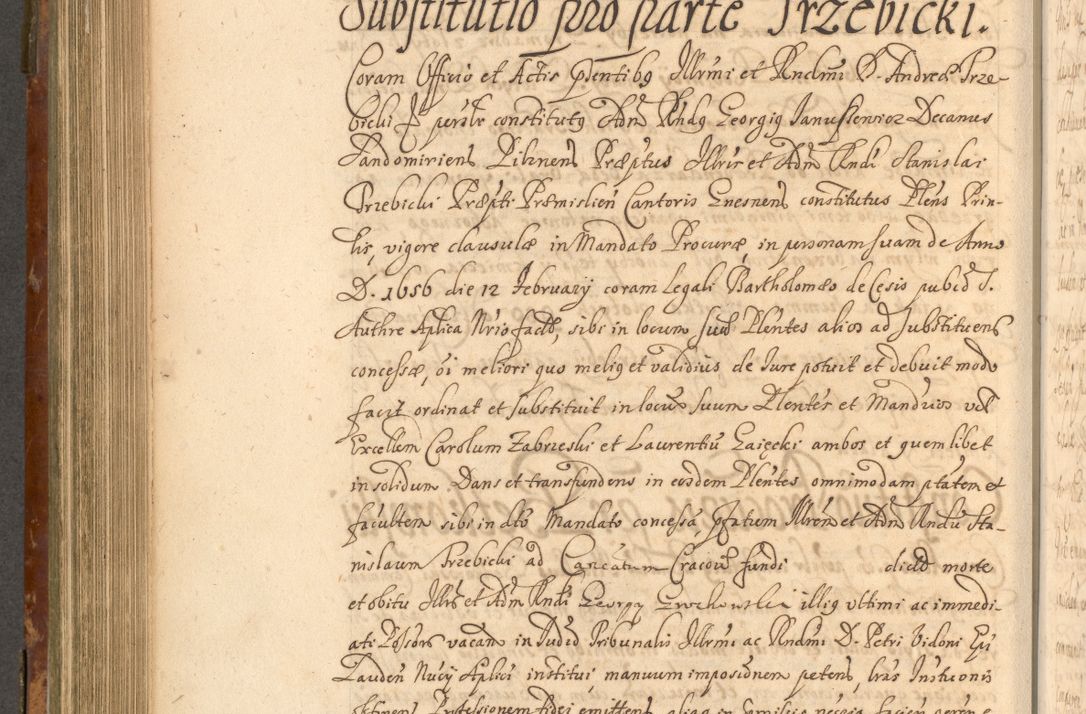 Substitutio pro parte Trzebicki.
Coram Officio et Actis pñtibq Illrmi et Rndmi D. Andreæ Trze-
bicki P persłr constitutq Adm Rndq Georgiq Januszewicz Decanus
Sandomiriens Pilznens Præptus Illris et Adm Rndi Stanislai
Trzebicki Præpti Præmislien Cantoris Gnesnens constitutus Plens Prin-
lis, vigore clausulæ in Mandato Procuræ in personam suam de Anno
D. 1656 die 12 February coram legali Bartholomæo de Cesio pubco S.
Authre Aplica Nrio facto, sibi in locum suũ Plentes alios ad substituens
concessæ, oi meliori quo meliq et validius de Jure potuit et debuit modo
facit ordinat et substituit in locũ suum Plentes et Mandrios vd
Excellem Carolum Zabrzeski et Laurentiũ Gaięcki ambos et quemlibet
in solidum. Dans et transfundens in eosdem Plentes omnimodam ptatem et
facultem sibi in dto Mandato concessã, Pfatum Illrem et Adm Rndũ Sta-
nislaum Trzebicki ad Cancatum Cracou fundi dicto morte
et obitu Illris et Adm Rndi Georgy illiq vltimi ac immedi-
ati Possors vacan in Judicio Tribunalis Illrmi ac Rndmi D. Petri Vidoni Epi
Lauden Nucy Aplici institui manuum imposionem petens, lras Instuonis
Professionem fidei emittens alias in